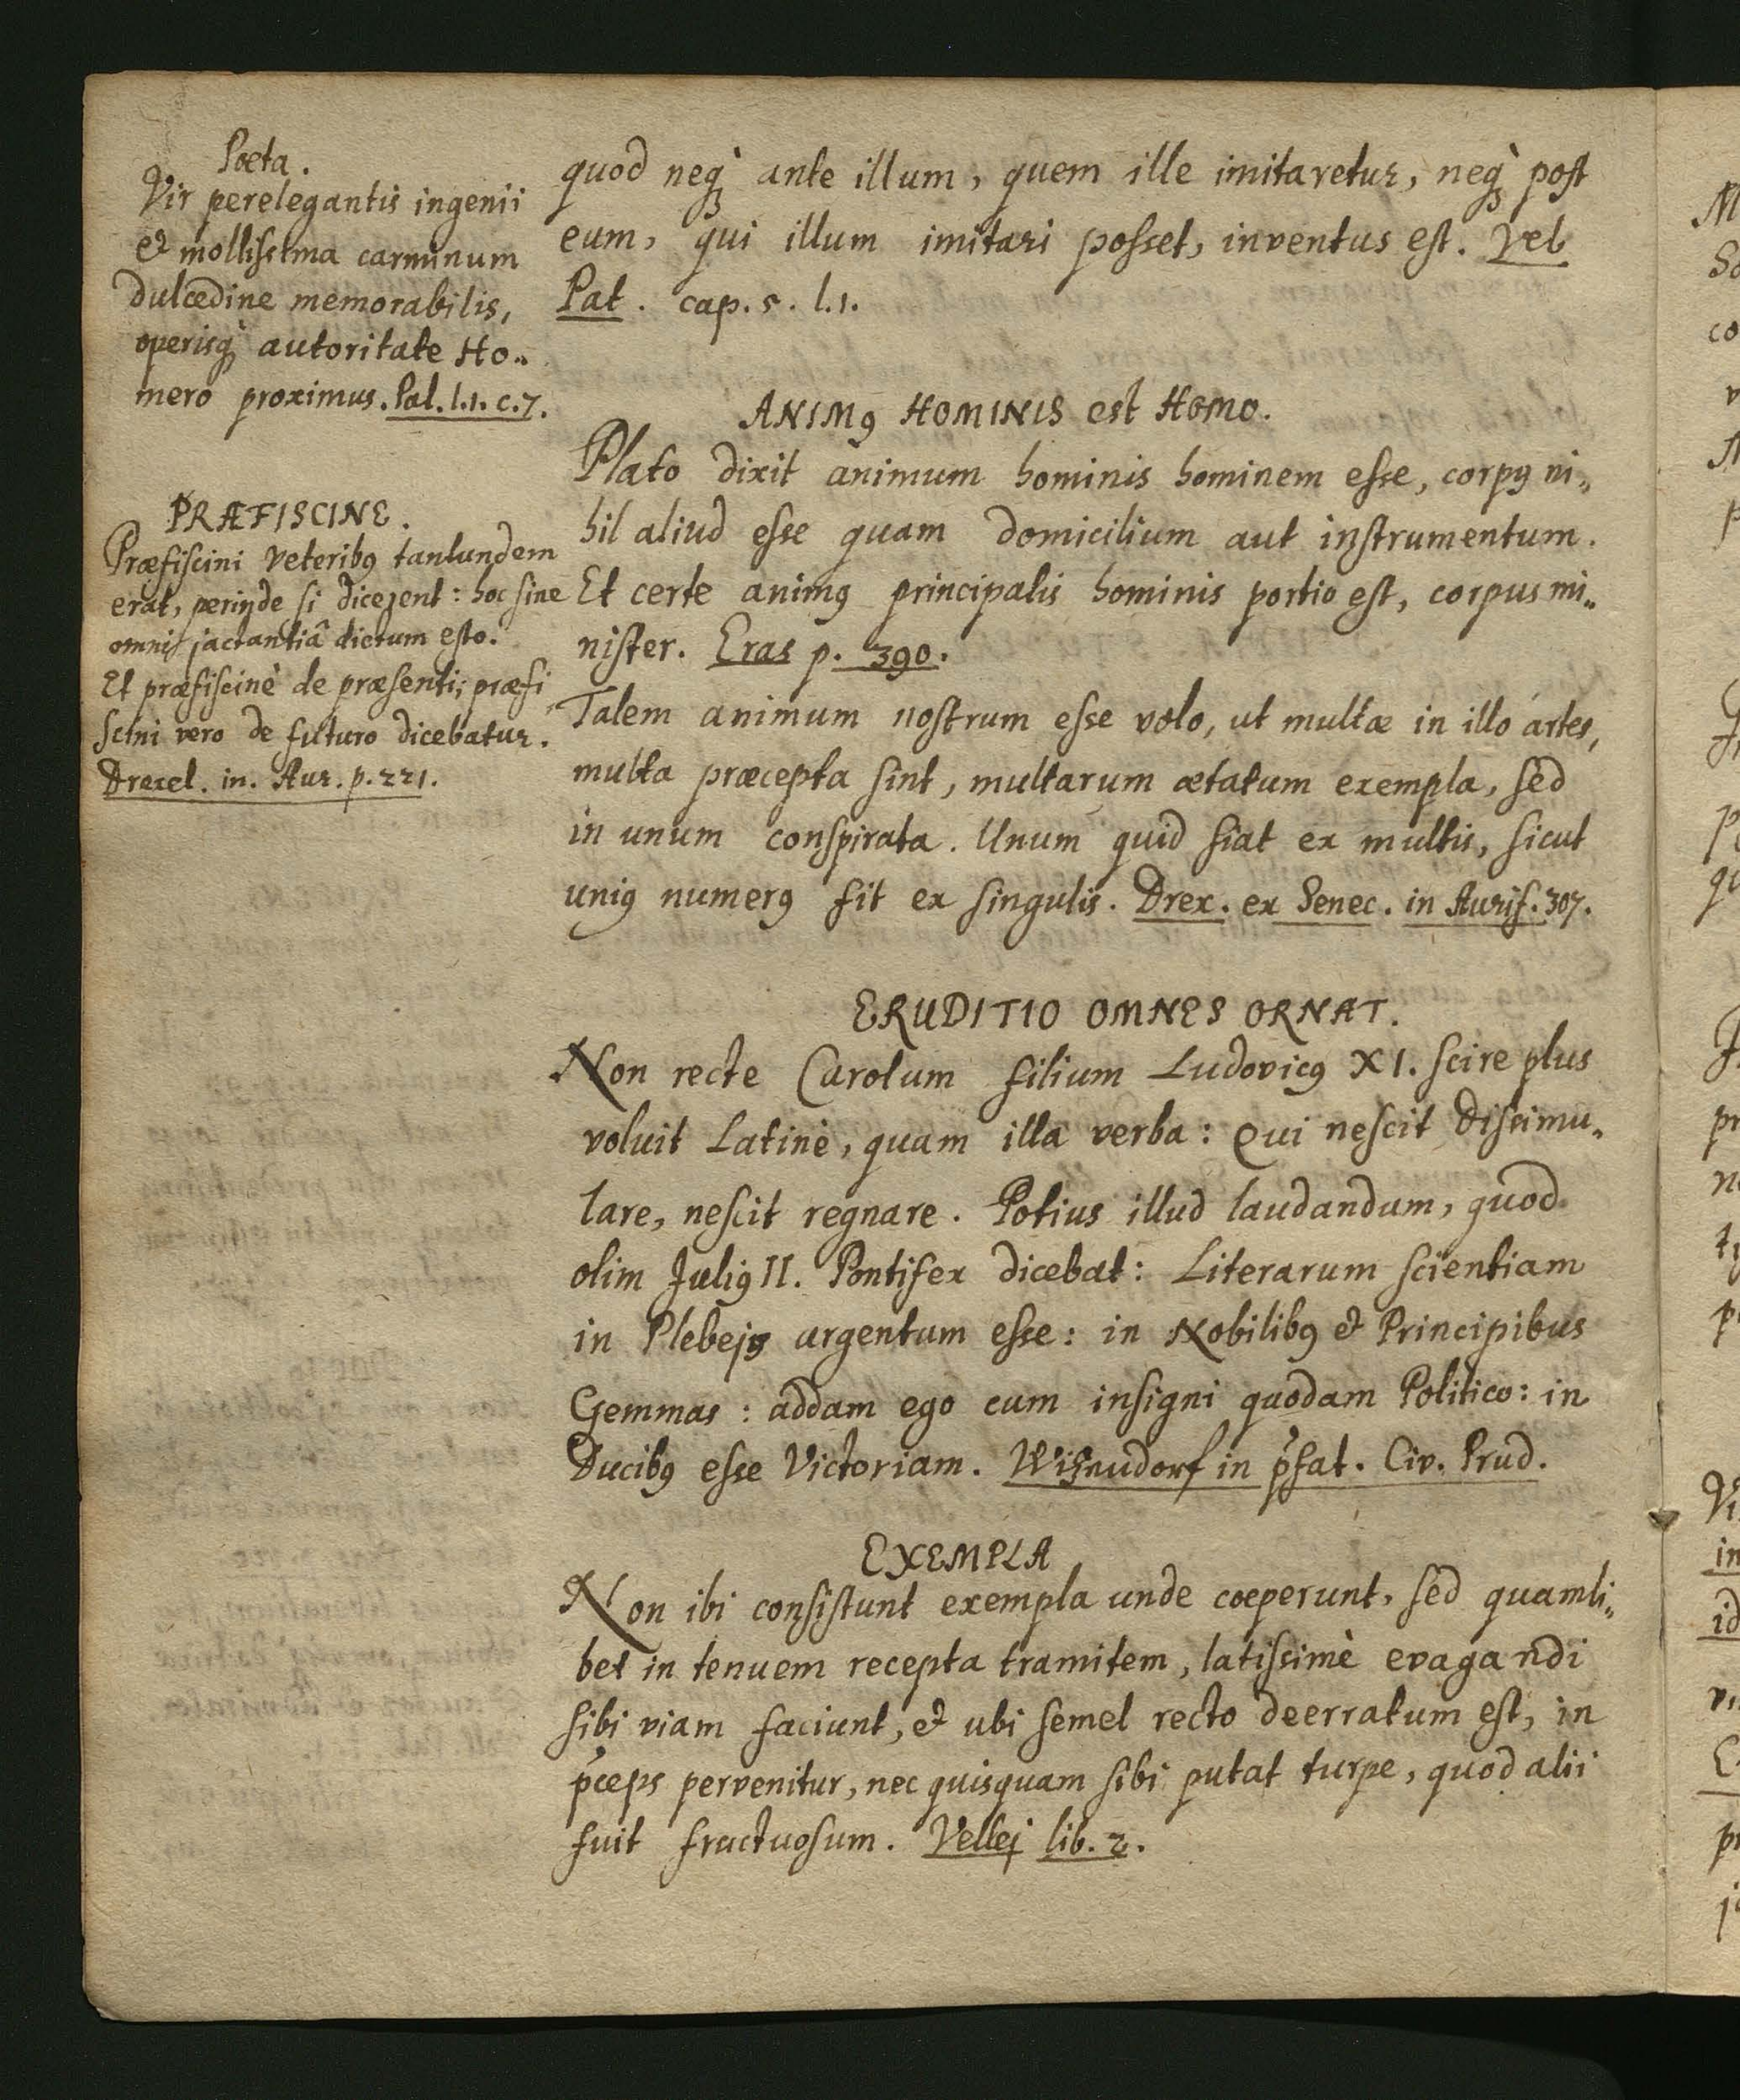 Poeta.
Vir perelegantis ingenii
et mollissima carminum
dulcedine memorabilis,
operisq̀ autoritate Ho„
mero proximus. Pat. l.1. c.7.
PRÆFISCINE.
Præfiscini veteribꝰ tantundem
erat, perinde si dicerent: hoc sine
omni jactantiâ dictum esto.
Et præfiscinè de præsenti, præfi
scini vero de futuro dicebatur.
Drexel. in. Aur. p. 221.
quod neq̀ ante illum, quem ille imitaretur, neq̀ post
eum, qui illum imitari posset, inventus est. Vel
Pat. cap. 5. l.1.
ANIMꝰ HOMINIS est HOMO.
Plato dixit animum hominis hominem esse, corpꝰ ni„
hil aliud esse quam domicilium aut instrumentum.
Et certe animꝰ principalis hominis portio est, corpus mi„
nister. Eras p. 390.
Talem animum nostrum esse volo, ut multæ in illo artes,
multa præcepta sint, multarum ætatum exempla, sed
in unum conspirata. Unum quid fiat ex multis, sicut
uniꝰ numerꝰ fit ex singulis. Drex. ex Senec. in Aurif. 307.
ERUDITIO OMNES ORNAT.
Non recte Carolum filium Ludovicꝰ XI. scire plus
voluit Latinè, quam illa verba: Qui nescit dissimu„
lare, nescit regnare. Potius illud laudandum, quod
olim Juliꝰ II. Pontifex dicebat: Literarum scientiam
in Plebejs argentum esse: in Nobilibꝰ et Principibus
Gemmas: addam ego cum insigni quodam Politico: in
Ducibꝰ esse Victoriam. in p̓fat. Civ. Prud.
EXEMPLA
Non ibi consistunt exempla unde cœperunt, sed quamli„
bet in tenuem recepta tramitem, latissimè evagandi
sibi viam faciunt, et ubi semel recto deerratum est, in
p̓ceps pervenitur, nec quisquam sibi putat turpe, quod alii
fuit fructuosum. Vellej lib. 2.